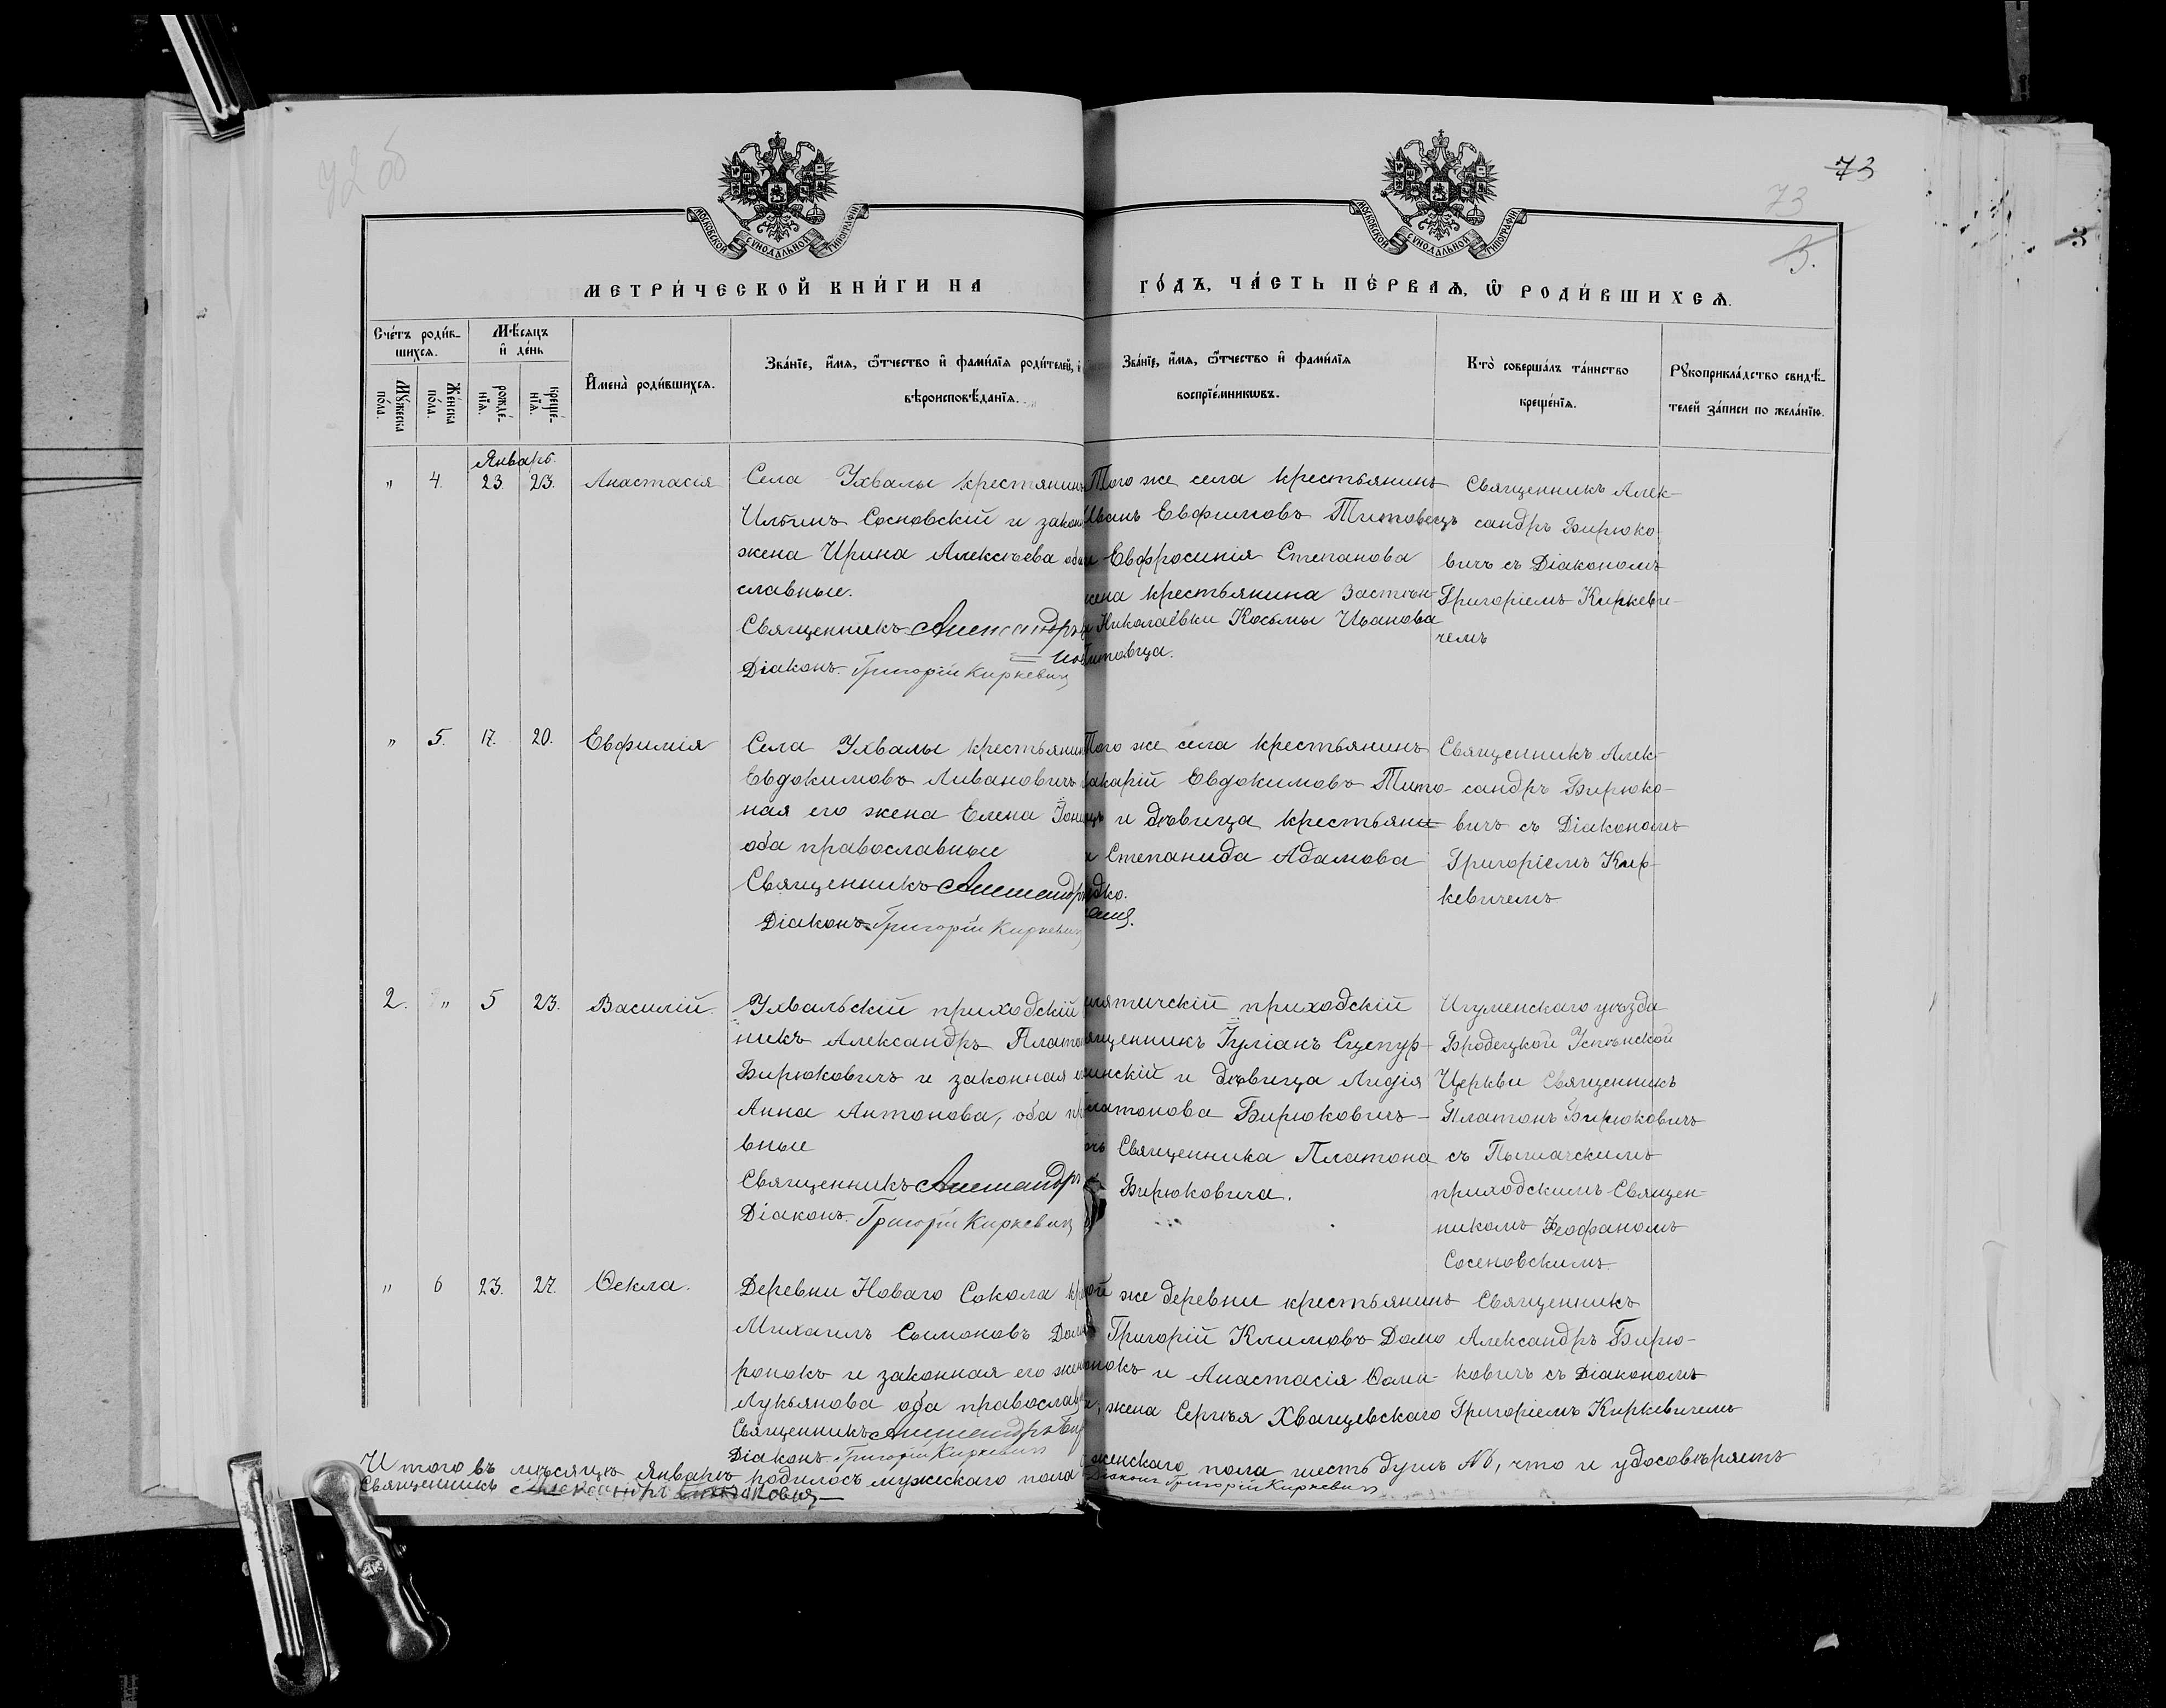 72 об
73
73
3.
МОСКОВСКОЙ СѴНОДАЛЬНОЙ ТИПОГРАФІИ
МОСКОВСКОЙ СѴНОДАЛЬНОЙ ТИПОГРАФІИ
МЕТРИ́ЧЕСКОЙ КНИ́ГИ НА
ГО́ДЪ, ЧА́СТЬ ПЕ́РВАѦ, Ѿ РОДИ́ВШИХСѦ.
Сче́тъ роди́в-
шихсѧ.
Мѣсѧцъ
и҆ де́нь
Мꙋ́жеска
по́ла.
Же́нска
по́ла.
рожде́-
нїѧ.
креще́-
нїѧ.
И҆мена̀ роди́вшихсѧ.
Зва́нїе, и҆́мѧ, ѻ҆́тчество и҆ фами́лїѧ роди́телей, и҆
вѣроисповѣ́данїѧ.
Зва́нїе, и҆́мѧ, ѻ҆́тчество и҆ фами́лїѧ
воспрїе́мникѡвъ.
Кто̀ соверша́лъ та́инство
креще́нїѧ.
Рꙋкоприкла́дство свидѣ́-
телей за́писи по жела́нїю.
Январь.
" 4. 23. 23. Анастасія
Села Ухвалы крестянинъ
Ильинъ Сосновскій и закон
жена Ирина Алексѣева оба
славные.
Священникъ Александръ
Діаконъ Григорій Киркевич
Того же села крестьянинъ
Иванъ Евфимовъ Титовецъ
и Евфросинія Степанова
жена крестьянина Застѣн-
Николаевки Косьмы Иванова
Титовца.
Священникъ Алек-
сандръ Бирюко-
вичъ съ Діакономъ
Григоріемъ Киркеви-
чемъ
" 5. 17. 20. Евфимія
Села Ухвалы крестьянин
Евдокимовъ Ливановичъ
ная его жена Елена
оба православные
Священникъ Александръ
Діаконъ Григорій Киркевич
Того же села крестьянинъ
Макарій Евдокимовъ Тито-
и дѣвица крестьяни
Степанида Адамова
Священникъ Алек-
сандръ Бирюко-
вичъ съ Діакономъ
Григоріемъ Кир-
кевичемъ
2. " 5 23. Василій.
Ухвальскій приходскій
никъ Александръ Плато
Бирюковичъ и законная
Анна Антонова, оба пр
вные
Священникъ Александръ
Діаконъ Григорій Киркевич
приходскій
Священникъ Іуліанъ Сцепур-
жинскій и дѣвица Лидія
Платонова Бирюковичъ-
Священника Платона
Бирюковича.
Игуменскаго уѣзда
Бродецкой Успѣнской
Церкви Священникъ
Платонъ Бирюковичъ
съ
приходскимъ Священ-
никомъ Ѳеофаномъ
Сосеновскимъ
" 6 23. 27. Ѳекла.
Деревни Новаго Сокола кр
Михаилъ Сымоновъ Дом
ронокъ и законная его жен
Лукьянова оба православ
Священникъ Александръ Бир
Діаконъ Григорій Киркевич
той же деревни крестьянинъ
Григорій Климовъ Домо
ронокъ и Анастасія Ѳоми-
жена Сергѣя Хванцевскаго
Священникъ
Александръ Бирю-
ковичъ съ Діакономъ
Григоріемъ Киркевичемъ
Итого въ мѣсяцѣ Январѣ родилось мужескаго пола
женскаго пола шесть душъ №6, что и удостовѣряетъ
Священникъ Александръ Бирюкович
Діаконъ Григорій Киркевич